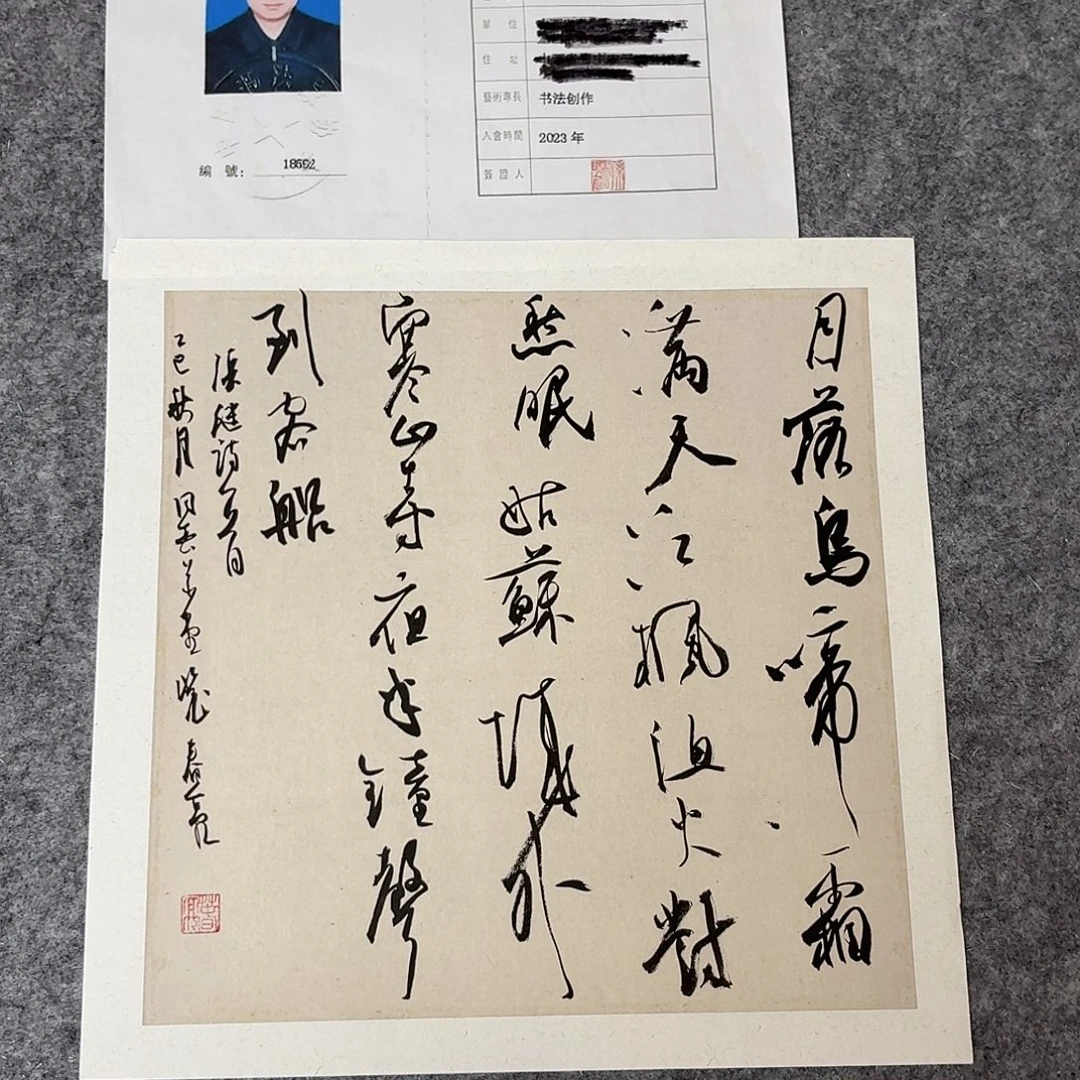 單 位
住 址
藝術專長 书法创作
入會時間 2023 年
簽證人
編 號：
月落烏啼霜
滿天江楓漁火對
愁眠姑蘇城外
寒山寺夜半鐘聲
到客船
張繼詩一首
乙巳秋月